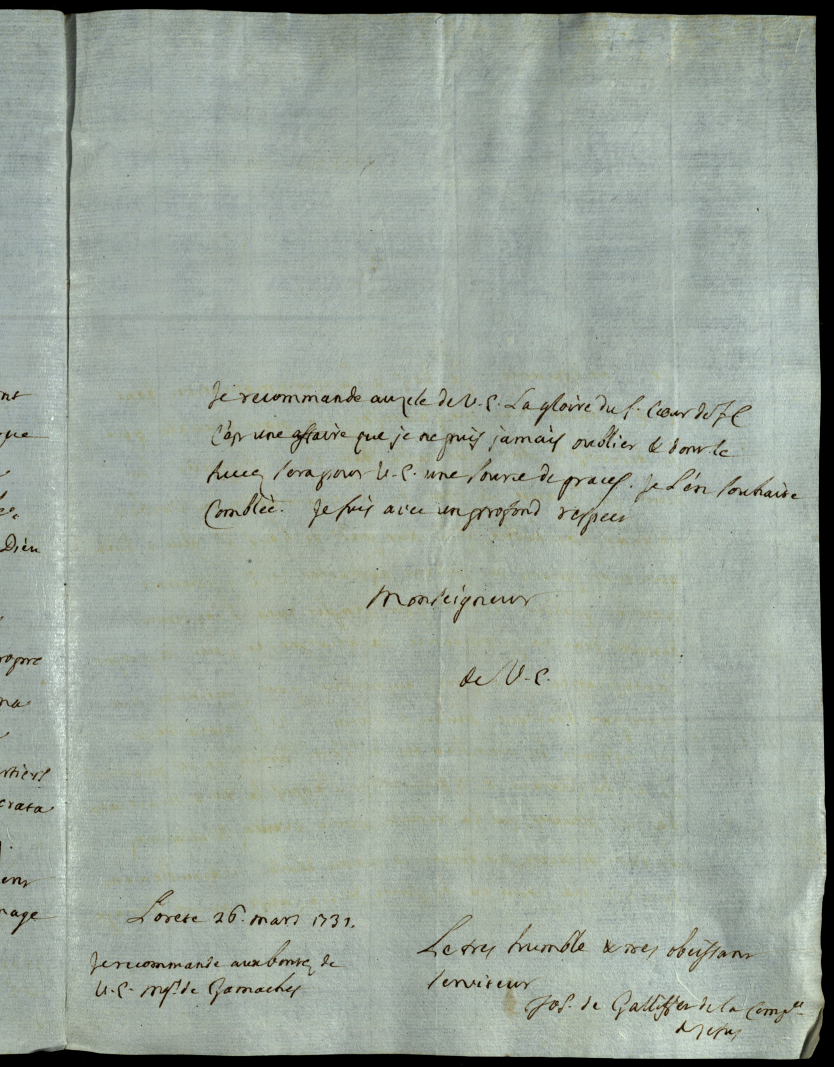 nt
que
Dieu
propre
ma
rtiers
crata
ens
nage
Je recommande au zele de V. E. La gloire du S. Coeur de J C
C'est une affaire que je ne puis jamais oublier & dont le
succez sera pour V. E. une source de graces. Je L'en souhaite
Comblée. Je suis avec un profond respect
Monseigneur
de V. E.
Lorete 26. mars 1731.
Je recommande aux bontez de
V. E. Mgr. de Gamaches
Le tres humble & tres obeissant
serviteur
Jos. de Galliffet de la Compie
de Jesus